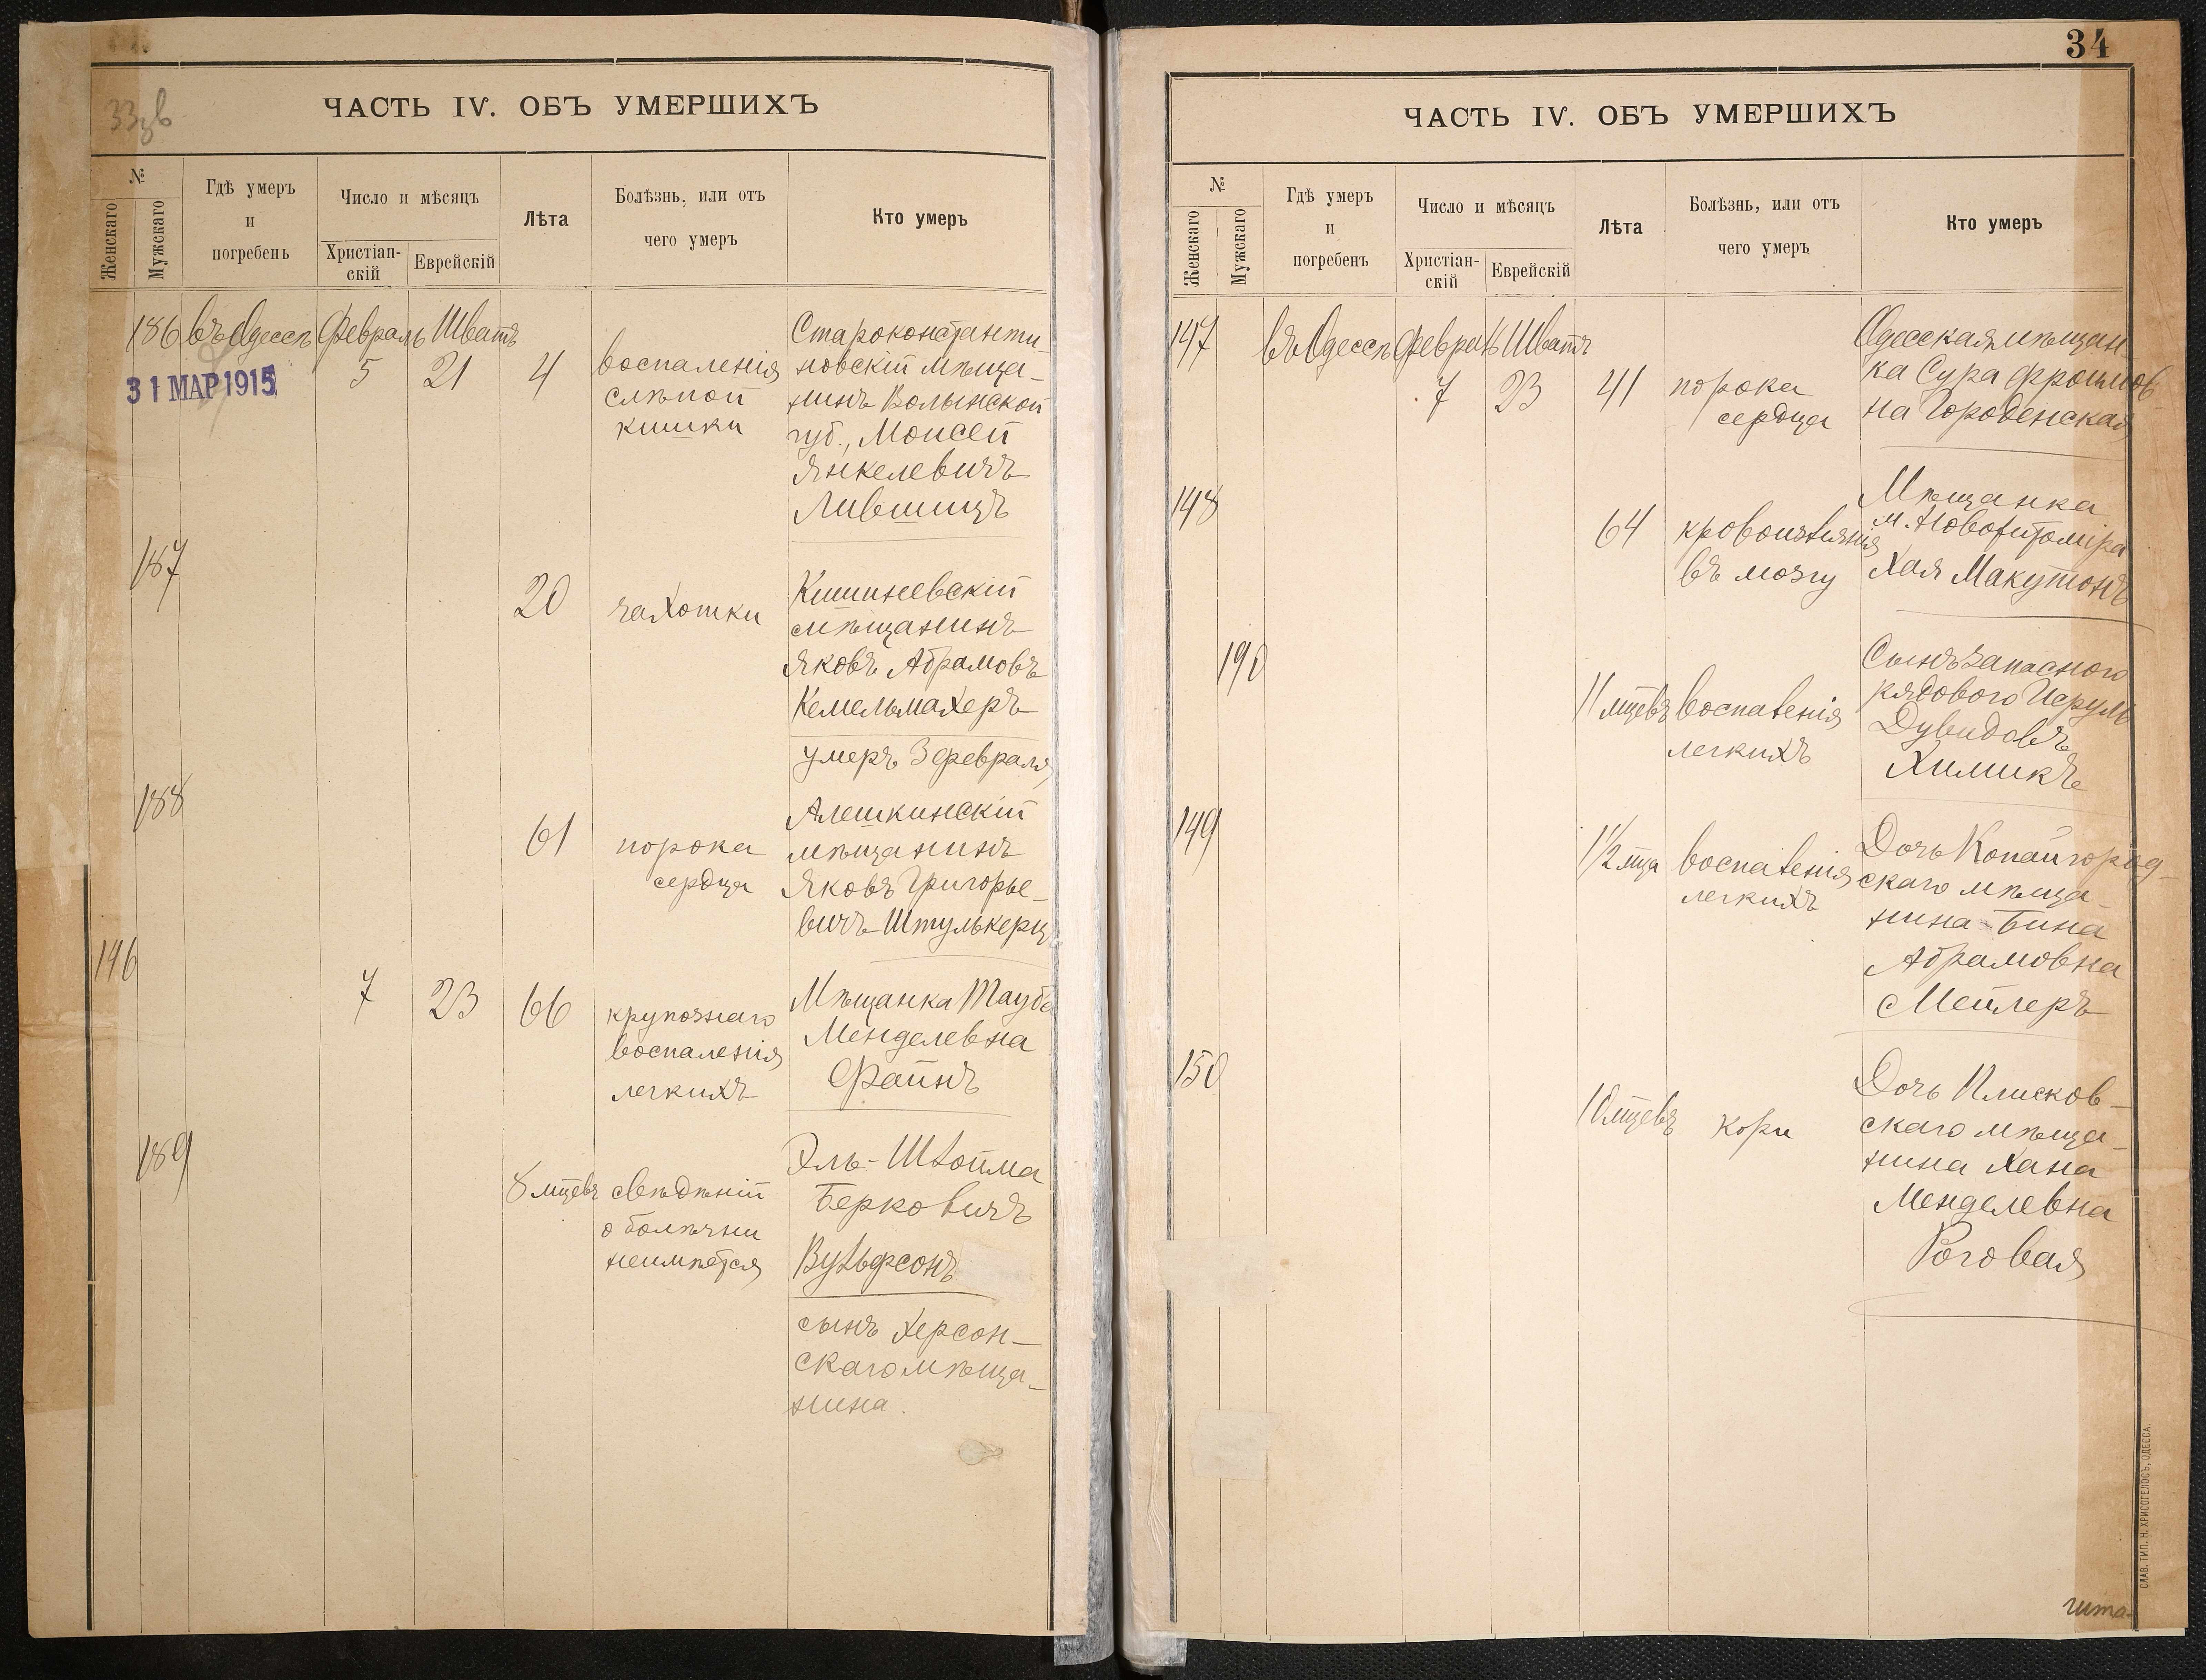 33зв
ЧАСТЬ IV. ОБЪ УМЕРШИХЪ
№
Женскаго
Мужскаго
Гдѣ умеръ
и
погребенъ
Число и мѣсяцъ
Христіан-
скій
Еврейскій
Лѣта
Болѣзнь, или отъ
чего умеръ
Кто умеръ
186 въ Одессѣ Февраль Шватъ
5 21 4
31 МАР 1915
воспаленія
слѣпой
кишки
Староконстанти-
новскій мѣща-
нинъ Волынской
губ., Моисей
Янкелевичъ
Лившицъ
187
20 чахотки
Кишиневскій
мѣщанинъ
Яковъ Абрамовъ
Кемельмахеръ
умеръ 3 февраля
188
61 порока
сердца
Алешкинскій
мѣщанинъ
Яковъ Григорье-
вичъ Штулькерцъ
146
7 23 66
крупознаго
воспаленія
легкихъ
Мѣщанка Тауба
Менделевна
Файнъ
189
8 мцевъ свѣдѣній
о болѣзни
неимѣется
Эль-Шлойма
Берковичъ
Вульфсонъ
сынъ Херсон-
скаго мѣща-
нина.
34
ЧАСТЬ IV. ОБЪ УМЕРШИХЪ
№
Женскаго
Мужскаго
Гдѣ умеръ
и
погребенъ
Число и мѣсяцъ
Христіан-
скій
Еврейскій
Лѣта
Болѣзнь, или отъ
чего умеръ
Кто умеръ
147 въ Одессѣ Февраль Шватъ
7 23 41 порока
сердца
Одесская мѣщан-
ка Сура Фроимов-
на Городенская
148
64 кровоизліянія
въ мозгу
Мѣщанка
м. Новожитоміра
Хая Макутонъ
190
11 мцевъ воспаленія
легкихъ
Сынъ запаснаго
рядового Исруль
Дувидовъ
Химикъ
149
1 1/2 мца воспаленія
легкихъ
Дочь Копайгород-
скаго мѣща-
нина Бина
Абрамовна
Мейлеръ
150
10 мцевъ кори
Дочь Плисков-
скаго мѣща-
нина Хана
Менделевна
Роговая
СЛАВ. ТИП. Н. ХРИСОГЕЛОСЪ, ОДЕССА.
чита-